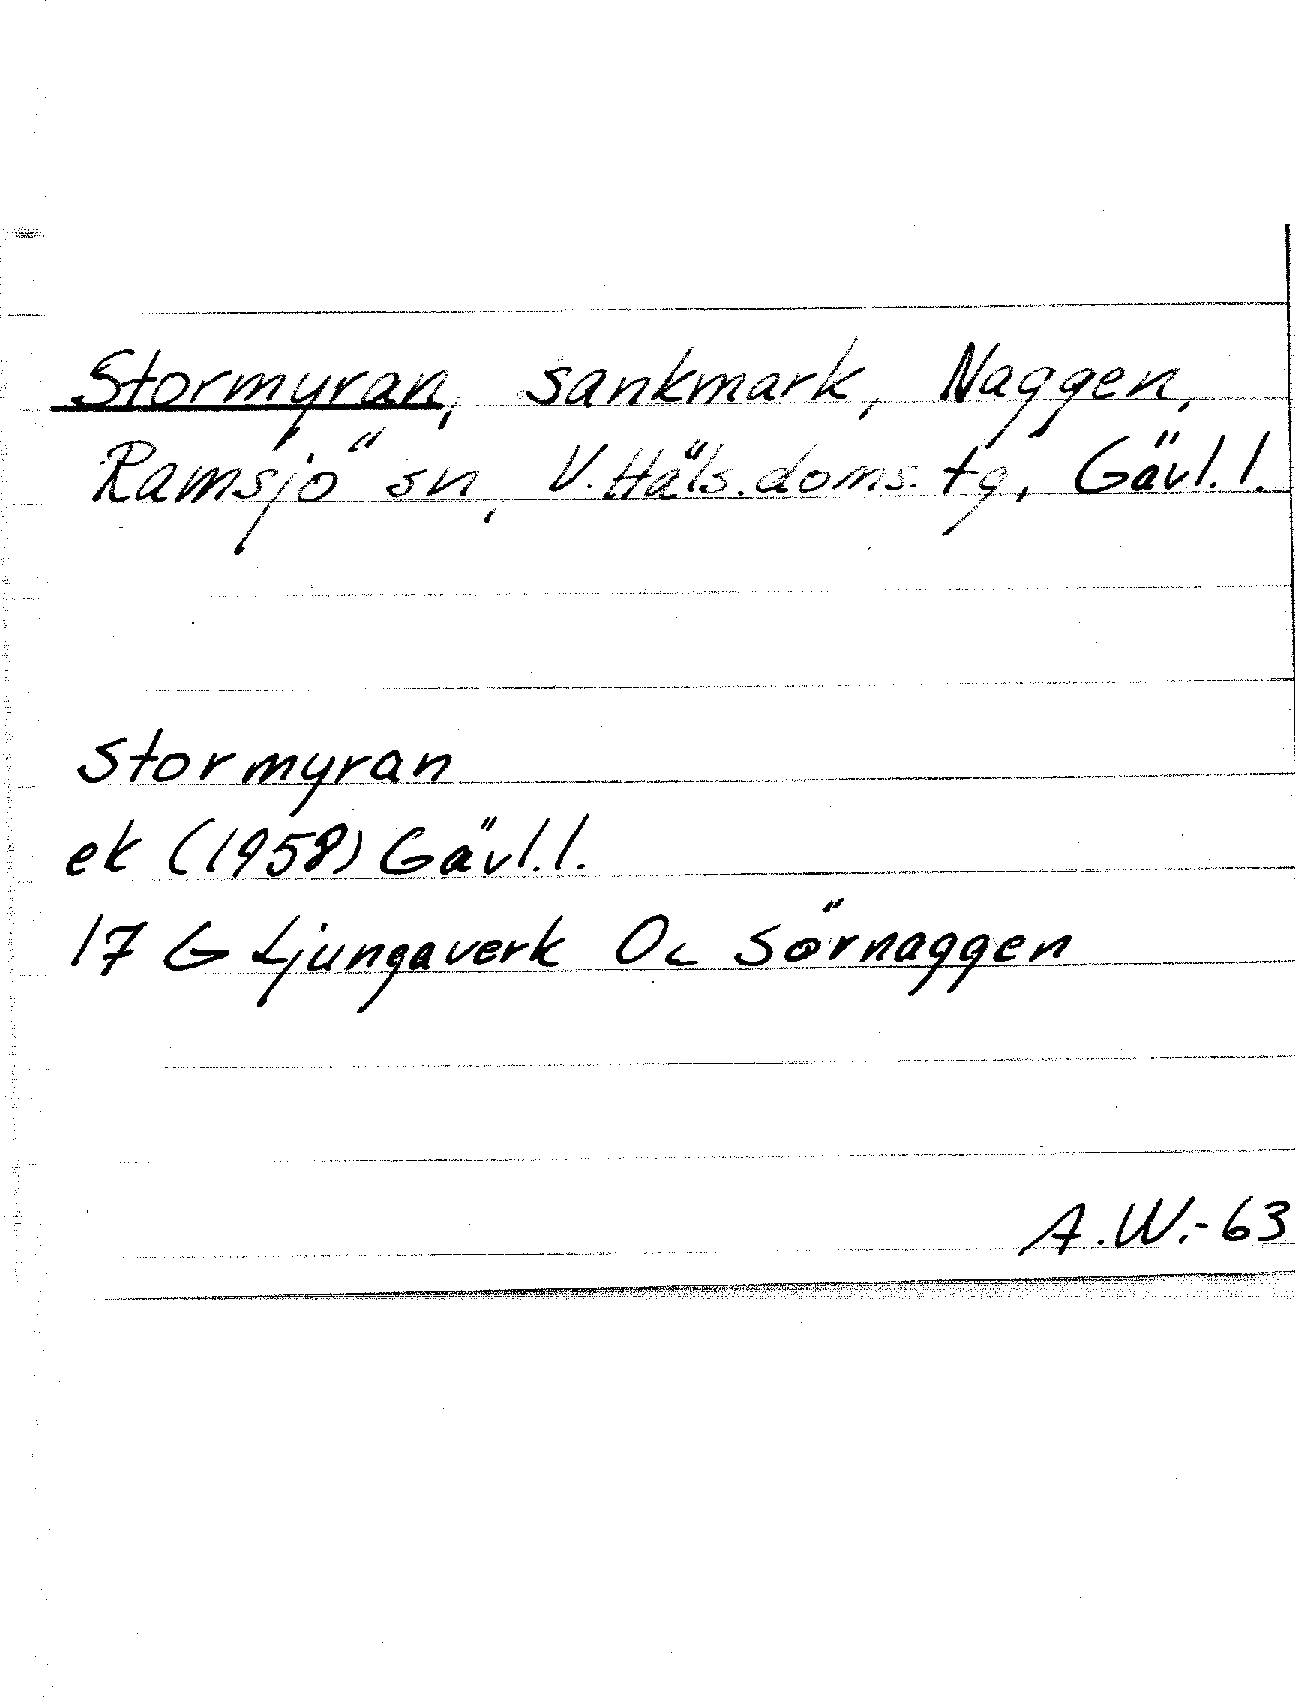 Stormyran, sankmark, Naggen,
Ramsjö sn, V.Häls.doms.tg, Gävl.l.
Stormyran
ek (1958) Gävl.l.
17 G Ljungaverk Oc Sörnaggen
A.W.-63